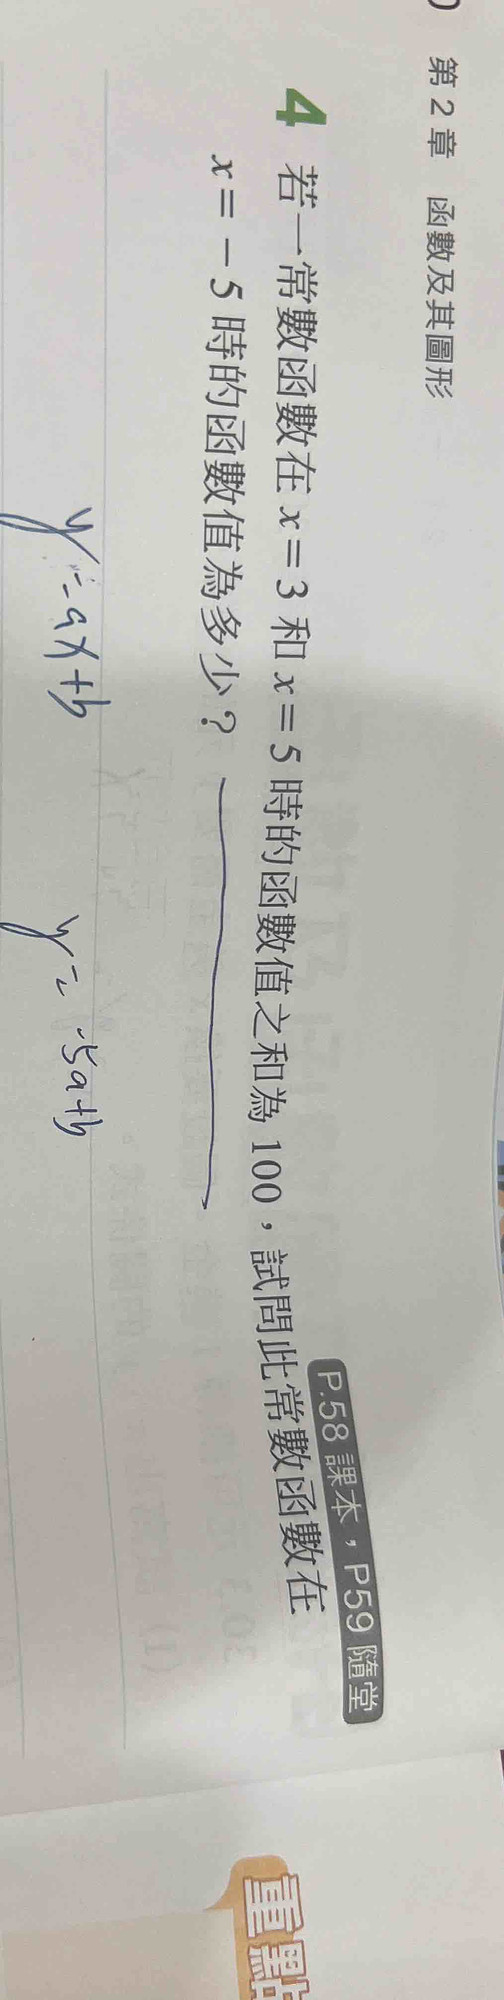 第 2 章　函數及其圖形
P.58 課本，P59 隨堂
4 若一常數函數在 x = 3 和 x = 5 時的函數值之和為 100，試問此常數函數在
x = − 5 時的函數值為多少？
y = ax + b
y = -5a + b
重點